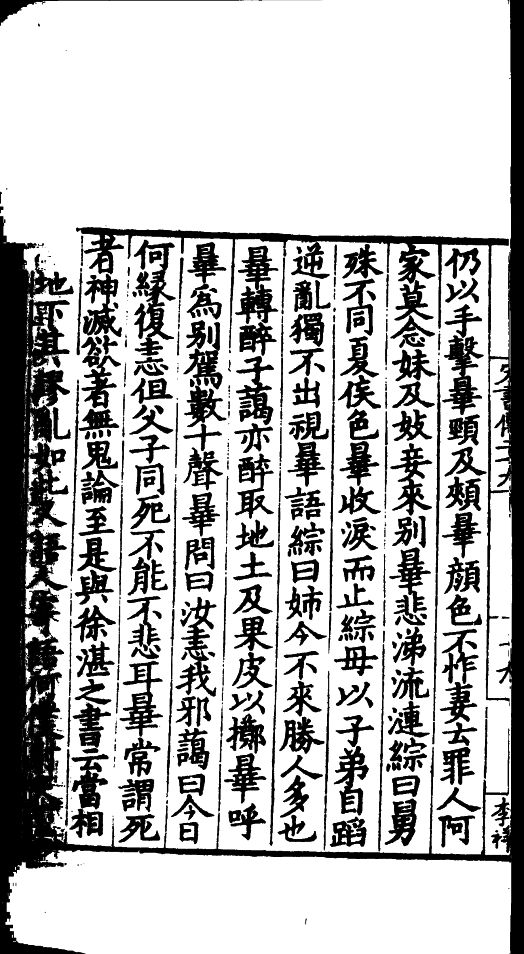 仍以手擊曅頸及頰曅顔色不怍妻云罪人阿
家莫念妹及妓妾來别曅悲涕流漣綜曰舅
殊不同夏侯色曅收淚而止綜母以子弟自蹈
逆亂獨不出視曅語綜曰姉今不來勝人多也
曅轉醉子藹亦醉取地土及果皮以擲曅呼
曅爲别駕數十聲曅問曰汝恚我邪藹曰今日
何縁復恚但父子同死不能不悲耳曅常謂死
者神滅欲著無鬼論至是與徐湛之書云當相
地下其謬亂如此又語人寄語何僕射
宋書傳二十九
十九
李祥